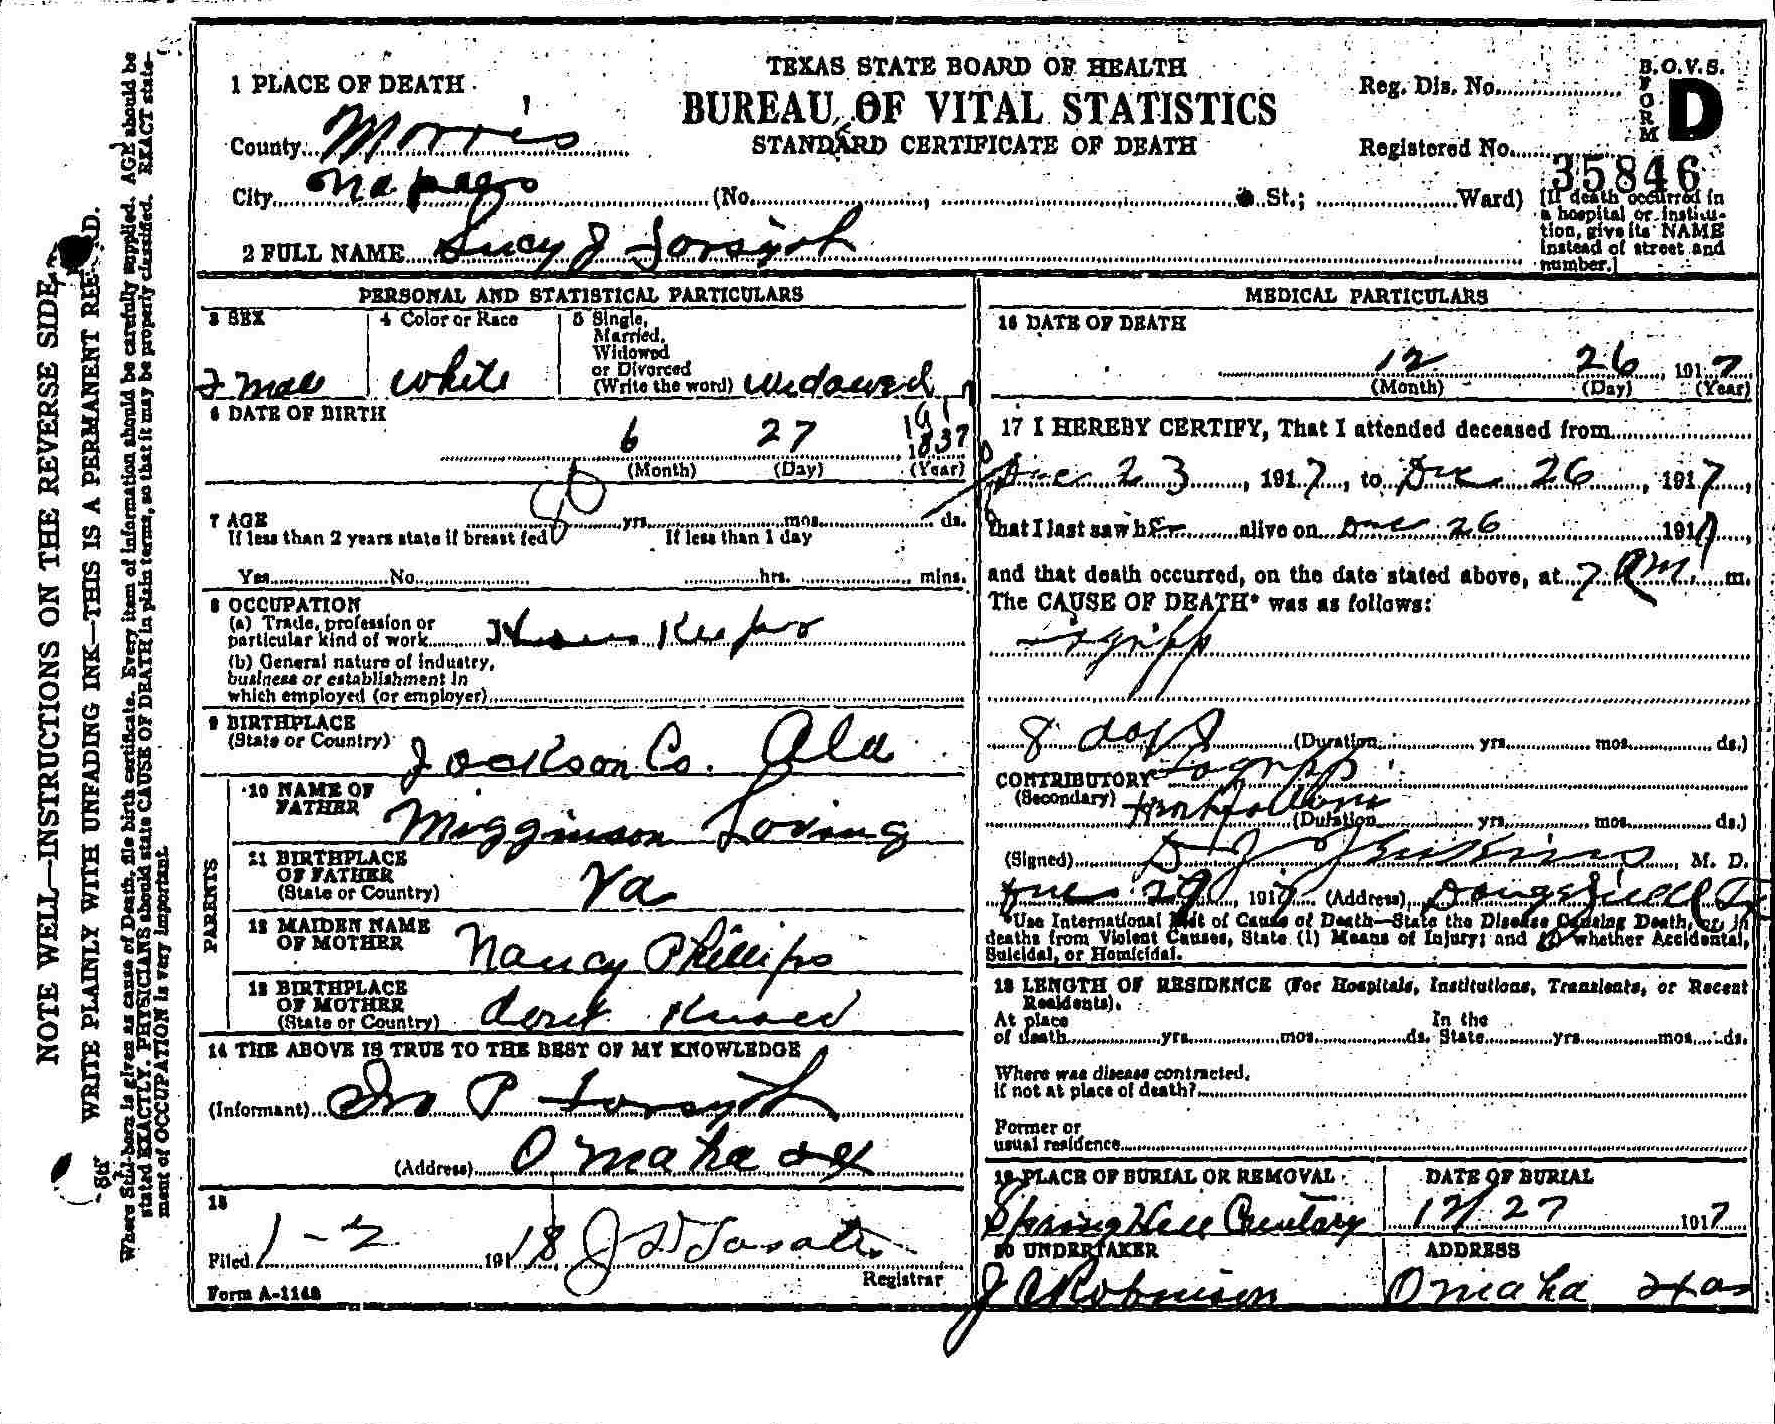 TEXAS STATE BOARD OF HEALTH
BUREAU OF VITAL STATISTICS
STANDARD CERTIFICATE OF DEATH
B.O.V.S.
FORM D
Reg. Dis. No.
Registered No. 35846
[If death occurred in a hospital or institution, give its NAME instead of street and number.]
1 PLACE OF DEATH
County Morris
City Naples (No. , St.; Ward)
2 FULL NAME Lucy J Forsyth
PERSONAL AND STATISTICAL PARTICULARS
3 SEX
Fmale
4 Color or Race
White
5 Single, Married, Widowed or Divorced (Write the word) Widowed
6 DATE OF BIRTH
6 27 1837
(Month) (Day) (Year)
7 AGE 80 yrs. mos. ds.
If less than 2 years state if breast fed If less than 1 day
Yes No hrs. mins.
8 OCCUPATION
(a) Trade, profession or
particular kind of work House Keeper
(b) General nature of industry,
business or establishment in
which employed (or employer)
9 BIRTHPLACE
(State or Country) Jackson Co. Ala
PARENTS
10 NAME OF FATHER Migginson Loving
11 BIRTHPLACE OF FATHER (State or Country) Va
12 MAIDEN NAME OF MOTHER Nancy Phillips
13 BIRTHPLACE OF MOTHER (State or Country) dont Know
14 THE ABOVE IS TRUE TO THE BEST OF MY KNOWLEDGE
(Informant) P Forsyth
(Address) Omaha Tex
15
Filed 1-2 1918 J
Registrar
Form A-1148
MEDICAL PARTICULARS
16 DATE OF DEATH
12 26, 1917
(Month) (Day) (Year)
17 I HEREBY CERTIFY, That I attended deceased from
Dec 23, 1917, to Dec 26, 1917,
that I last saw her alive on Dec 26 1917,
and that death occurred, on the date stated above, at 7 am. m.
The CAUSE OF DEATH* was as follows:
Lagripp
8 days (Duration yrs. mos. ds.)
CONTRIBUTORY Lagripp
(Secondary)
(Duration yrs. mos. ds.)
(Signed) D J Jenkins, M. D.
29, 1917 (Address) Daingerfield Tx
*Use International List of Cause of Death—State the Disease Causing Death, or, in
deaths from Violent Causes, State (1) Means of Injury; and (2) whether Accidental,
Suicidal, or Homicidal.
18 LENGTH OF RESIDENCE (For Hospitals, Institutions, Transients, or Recent Residents).
At place of death yrs. mos. ds. In the State yrs. mos. ds.
Where was disease contracted,
if not at place of death?
Former or
usual residence
19 PLACE OF BURIAL OR REMOVAL
Spring Hill Cemetary
DATE OF BURIAL
12/27 1917
20 UNDERTAKER
J C Robinson
ADDRESS
Omaha Texas
NOTE WELL—INSTRUCTIONS ON THE REVERSE SIDE
WRITE PLAINLY WITH UNFADING INK—THIS IS A PERMANENT RECORD.
Where Still-born is given as cause of Death, file birth certificate. Every item of information should be carefully supplied. AGE should be
stated EXACTLY. PHYSICIANS should state CAUSE OF DEATH in plain terms, so that it may be properly classified. EXACT state-
ment of OCCUPATION is very important.